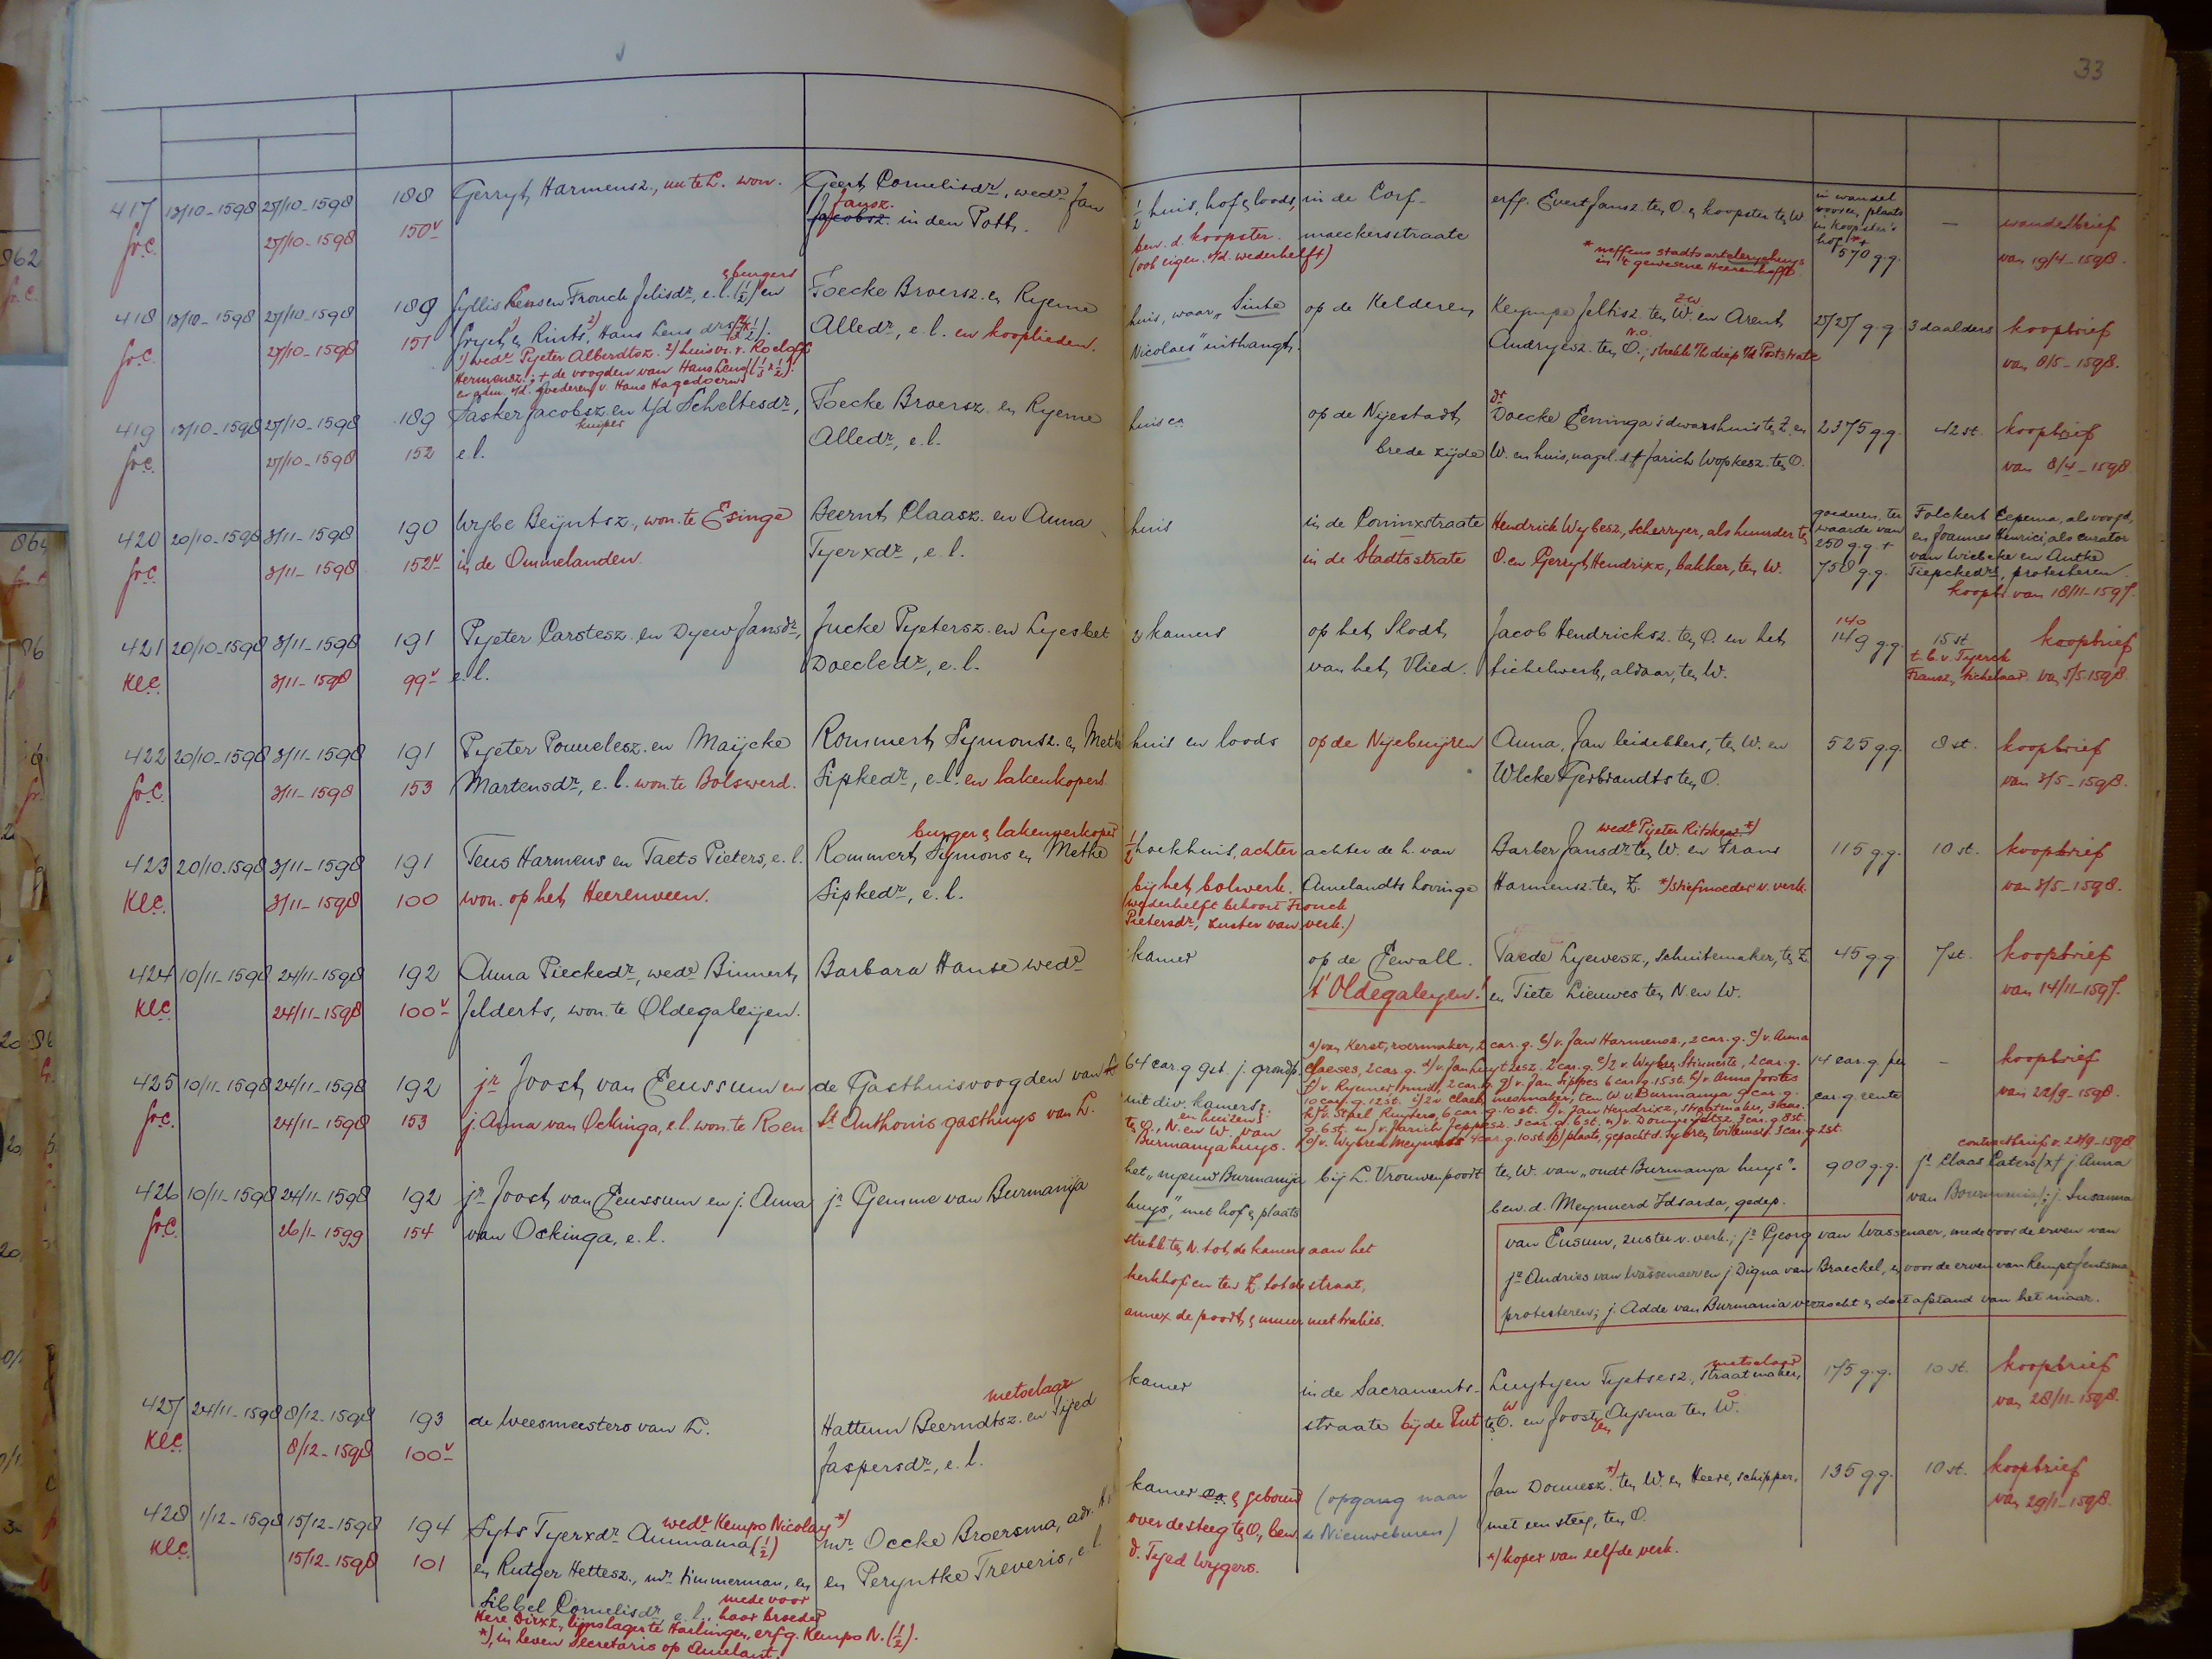 33
417 13/10-1598 27/10-1598 188 Gerryt Harmensz., nu te L. won. Geert Cornelisdr., wedr. Jan ½ huis, hof & loods, in de Corf- erfg. Evert Jansz. ten O. & koopster ten W. in wandel
Gr.C. 27/10-1598 150v Jansz. Jacobsz. in den Poth. bew. d. koopster. maeckersstraate — wandelbrief
(ook eigen. v/d. wederhelft) * neffens stadts artelerijehuys in 't gewesene Heerenhoff. 570 g.g. van 19/4-1598.
418 13/10-1598 27/10-1598 189 Jyllis en Frouck Jelisdr., e.l. (½) en & burgers Foecke Broersz. en Ryeme huis, waar "Sinte op de Kelderen Keympe Jeltisz. ten W. en Arent 2727 g.g. 3 daalders koopbrief
Gr.C. 27/10-1598 151 Hans Lens drs. Alledr., e.l. en kooplieden. Nicolaes" uithangt. Andryesz. ten O.; strekt van 8/5-1598.
1) wedr. Pyeter Alberdtsz. 2) huisvr. v. Roeloff
Hermensz.; + de voogden van Hans Lens
v/d. goederen v. Hans Hagedoorn
419 13/10-1598 27/10-1598 189 Sasker Jacobsz. en Scheltesdr., Foecke Broersz. en Ryeme huis ca. op de Nyestadt Doecke Eeninga's dwarshuis ten Z. en 2375 g.g. 42 st. koopbrief
Gr.C. 27/10-1598 152 kuiper e.l. Alledr., e.l. brede zijde W. en huis, nagel. d. Jarich Wopkesz. ten O. van 8/4-1598.
420 20/10-1598 3/11-1598 190 Wybe Beyntsz., won. te Esinge Beernt Claasz. en Anna huis in de Coninxstraate Hendrick Wybesz, scherryer, als huurder ten goederen, ter Folckert Eepema, als voogd,
Gr.C. 3/11-1598 152v in de Ommelanden. Tyerxdr., e.l. in de Stadtsstrate O. en Gerryt Hendrixz, bakker, ten W. waarde van en Joannes Henrici als curator
250 g.g. + van Wiebeke en Antke
750 g.g. Tiepckedrs, protesteren.
koopbr. van 18/11-1597.
421 20/10-1598 3/11-1598 191 Pyeter Carstesz. en Dyew Jansdr., Jucke Pyetersz. en Lyesbet 2 kamers op het Slodt Jacob Hendricksz. ten O. en het 140 149 g.g. 15 st. koopbrief
Kl.C. 3/11-1598 99v e.l. Doecledr., e.l. van het Vlied. tichelwerk, aldaar, ten W. t.b.v. Tyerck
Fransz, tichelaar. van 5/5-1598.
422 20/10-1598 3/11-1598 191 Pyeter Pouwelesz. en Maijcke Rommert Symonsz. en Methe huis en loods op de Nijebuijren Anna, Jan leidekkers, ten W. en 525 g.g. 8 st. koopbrief
Gr.C. 3/11-1598 153 Martensdr., e.l. won. te Bolswerd. Sipkedr., e.l. en lakenkopers. Wlcke Gerbrandts ten O. van 3/5-1598.
burger & lakenverkoper wedr. Pijeter Ritskesz. *)
423 20/10-1598 3/11-1598 191 Teus Harmens en Taets Pieters, e.l. Rommert Sijmons en Methe ½ hoekhuis, achter achter de h. van Barber Jansdr. ten W. en Frans 115 g.g. 10 st. koopbrief
Kl.C. 3/11-1598 100 won. op het Heerenveen. Sipkedr., e.l. bij het bolwerk. Amelandts hovinge Harmensz. ten Z. *) stiefmoeder v. verk. van 3/5-1598.
(wederhelft behoort Frouck
Pietersdr., zuster van verk.)
424 10/11-1598 24/11-1598 192 Anna Pieckedr., wedr. Binnert Barbara Hanse wedr. kamer op de Eewall. Taede Lyewesz., schuitemaker, ten Z. 45 g.g. 7 st. koopbrief
Kl.C. 24/11-1598 100v Jelderts, won. te Oldegaleijen. t' Oldegaleyen! en Tiete Lieuwes ten N. en W. van 14/11-1597.
425 10/11-1598 24/11-1598 192 jr. Joost van Eeussum en de Gasthuisvoogden van 64 car.g. 9 st. j. grondp. 14 car.g. per — koopbrief
Gr.C. 24/11-1598 153 j. Anna van Ockinga, e.l. won. te Roen St. Anthonis gasthuys van L. uit div. kamers car.g. rente van 22/9-1598.
en huizen
ten O., N. en W. van
Burmanyahuys.
a) van Kerst, roermaker, 2 car.g. b) v. Jan Harmensz., 2 car.g. c) v. Anna
Claeses, 2 car.g. d) v. Jan 2 car.g. e) 2 v. Wybes Stinnerts, 2 car.g.
2 car.g. g) v. Jan Sippes 6 car.g. 15 st. h) v. Anna Joostes
10 car.g. 12 st. i) 2 v. Claes, mesmaker, ten W. v. Burmania 9 car.g.
k) v. Stael Ruyters, 6 car.g. 10 st. l) v. Jan Hendrixz, straatmaker, 3 car.
g. 6 st. m) v. Jarich Jeppesz. 3 car.g. 6 st. n) v. 3 car.g. 8 st.
o) v. Wybren Meynerts 4 car.g. 10 st. p) plaats, gepacht d. Sybren Willemsz. 3 car.g. 2 st.
contractbrief v. 22/9-1598
426 10/11-1598 24/11-1598 192 jr. Joost van Eeussum en j. Anna jr. Gemme van Burmanija het "nyeuw Burmanija bij L. Vrouwenpoort ten W. van "oudt Burmanya huys". 900 g.g. jr. Claas Caters j. Anna
Gr.C. 26/1-1599 154 van Ockinga, e.l. huys", met hof & plaats bew. d. Meynnerd Idsarda, gedep. van Bourmania; j. Susanna
strekt ten N. tot de kamers aan het van Eusum, zuster v. verk.; jr. Georg van Wassenaer, mede voor de erven van
kerkhof en ten Z. tot de straat, jr. Andries van Wassenaer en j. Digna van Braeckel, en voor de erven van Kempt Jentsma
annex de poort & muur met tralies. protesteren; j. Adde van Burmania verzocht & doet afstand van het niaar.
427 24/11-1598 8/12-1598 193 de weesmeesters van L. metselaar Hattum Beerndtsz. en Tijed kamer in de Sacraments- Luytyen Tyetsesz, straatmaker, metselaar 175 g.g. 10 st. koopbrief
Kl.C. 8/12-1598 100v Jaspersdr., e.l. straate bij de Put ten O. en Joost Aysma ten W. van 28/11-1598.
428 1/12-1598 15/12-1598 194 Syts Tyerxdr. Aumama (½) wedr. Kempo Nicolay *) mr. Occke Broersma, adv. kamer ca. & gebouw (opgang naar Jan Douwesz. *) ten W. en Heere, schipper, 135 g.g. 10 st. koopbrief
Kl.C. 15/12-1598 101 en Rutger Hettesz., mr. timmerman, en en Peryntke Treveris, e.l. over de steeg ten O., bew. de Nieuweburen) met een steeg, ten O. van 29/1-1598.
Sibbel Cornelisdr., e.l., mede voor haar broeder d. Tyed Wygers. *) koper van zelfde verk.
Here Dirxz, lijnslager te Haelingen, erfg. Kempo N. (½).
*) in leven Secretaris op Amelant.